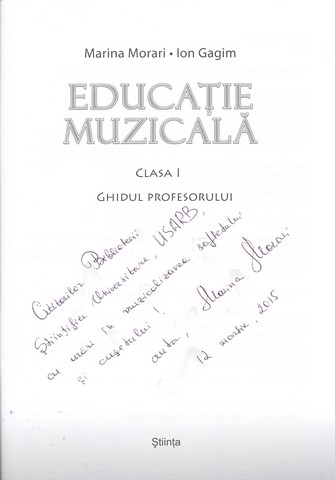 Marina Morari • Ion Gagim
EDUCAȚIE
MUZICALĂ
CLASA I
GHIDUL PROFESORULUI
Cititorilor Bibliotecii
Științifice Universitare, USARB,
cu urări în muzicalizarea sufletului
și cugetului!
autor, Marina Morari
12 martie, 2015
Știința